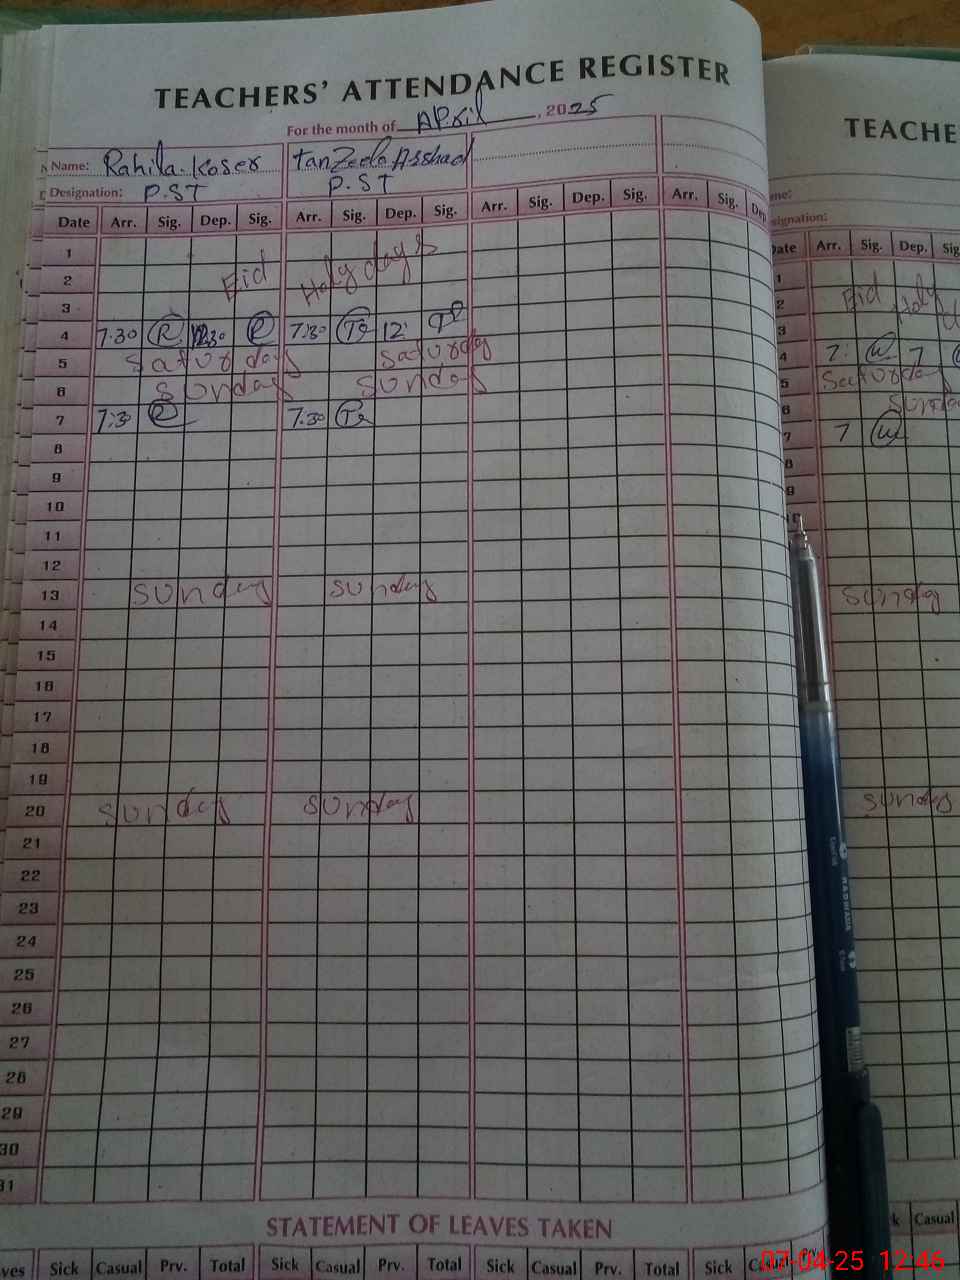 TEACHERS' ATTENDANCE REGISTER
For the month of April, 2025
Name: Rahila. Koser TanZeela Arshad
Designation: P.ST P.ST
Date Arr. Sig. Dep. Sig. Arr. Sig. Dep. Sig. Arr. Sig. Dep. Sig. Arr. Sig. Dep
1
2 Eid Holy days
3
4 7:30 R 12:30 R 7:30 Ta 12:
5 Saturday Saturday
6 Sunday Sunday
7 7:30 R 7:30 Ta
8
9
10
11
12
13 Sunday Sunday
14
15
16
17
18
19
20 Sunday Sunday
21
22
23
24
25
26
27
28
29
30
31
STATEMENT OF LEAVES TAKEN
ves Sick Casual Prv. Total Sick Casual Prv. Total Sick Casual Prv. Total Sick Prv.
TEACHE
me:
signation:
Date Arr. Sig. Dep. Sig
1
2 Eid Holy
3
4 7: W 7
5 Saturday
6 Sunday
7 7 W
8
9
10
Sunday
Sunday
k Casual
07-04-25 12:46